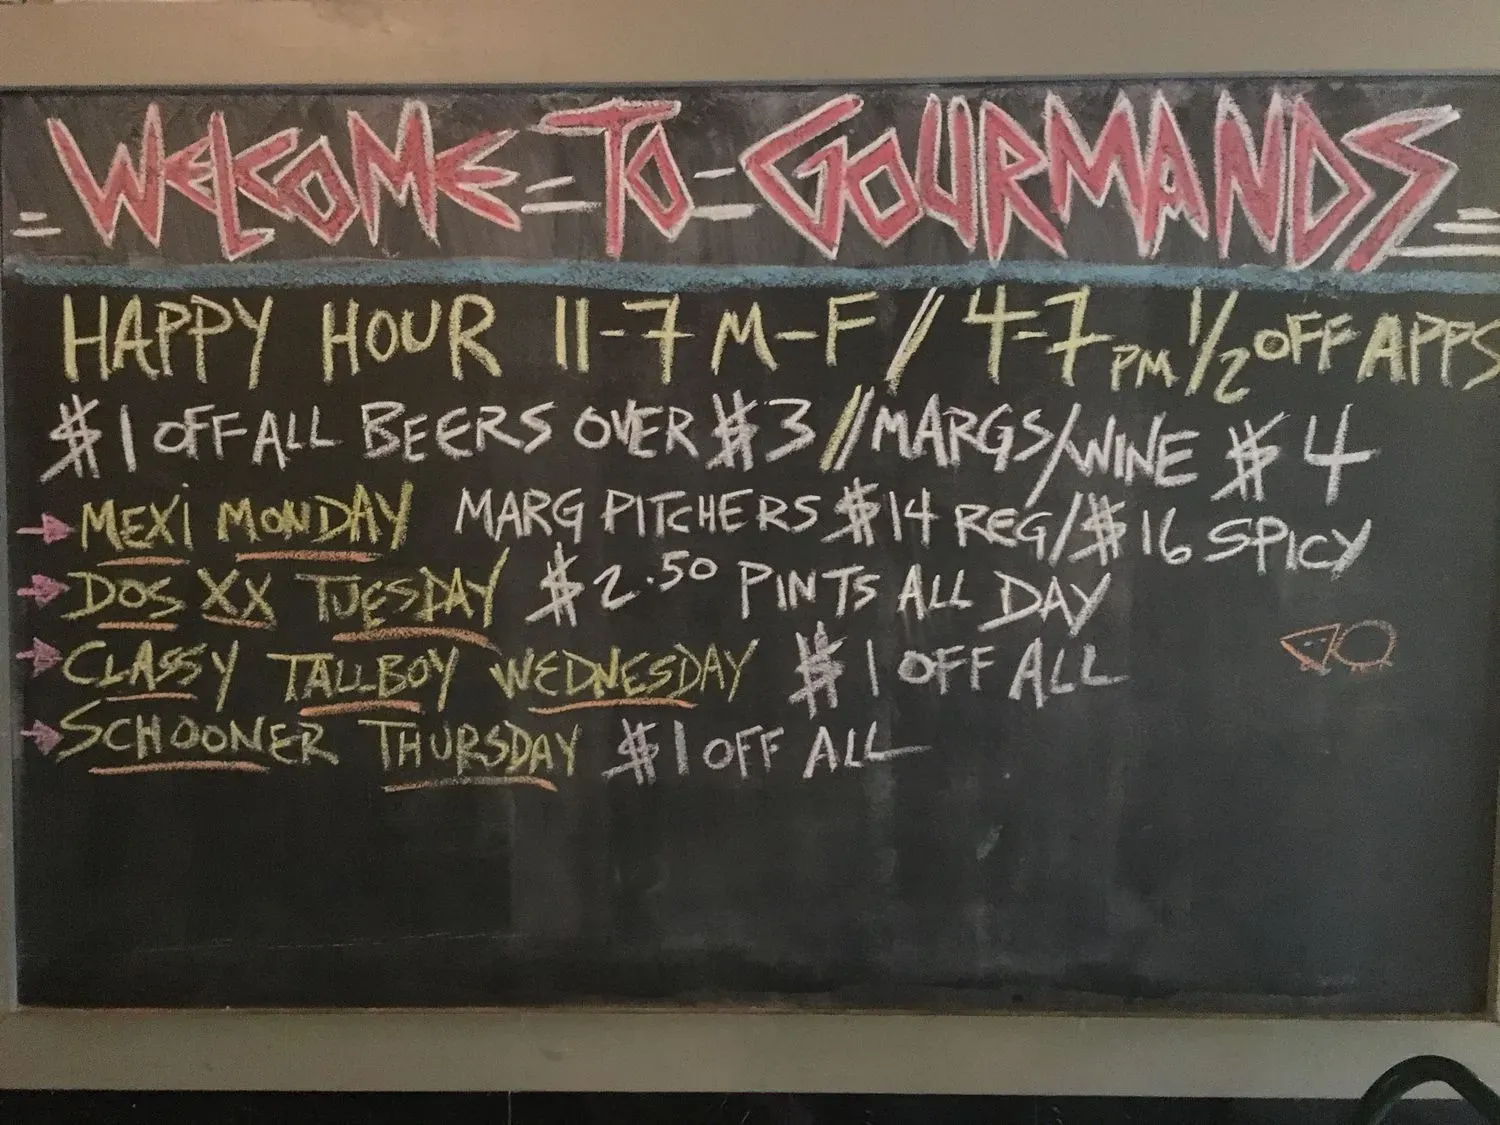 WELCOME TO GOURMANDS
HAPPY HOUR 11-7 M-F // 4-7PM 1/2 OFF APPS
$1 OFF ALL BEERS OVER $3 // MARGS/WINE $4
MEXI MONDAY MARG PITCHERS $14 REG/$16 SPICY
DOS XX TUESDAY $2.50 PINTS ALL DAY
CLASSY TALLBOY WEDNESDAY $1 OFF ALL
SCHOONER THURSDAY $1 OFF ALL